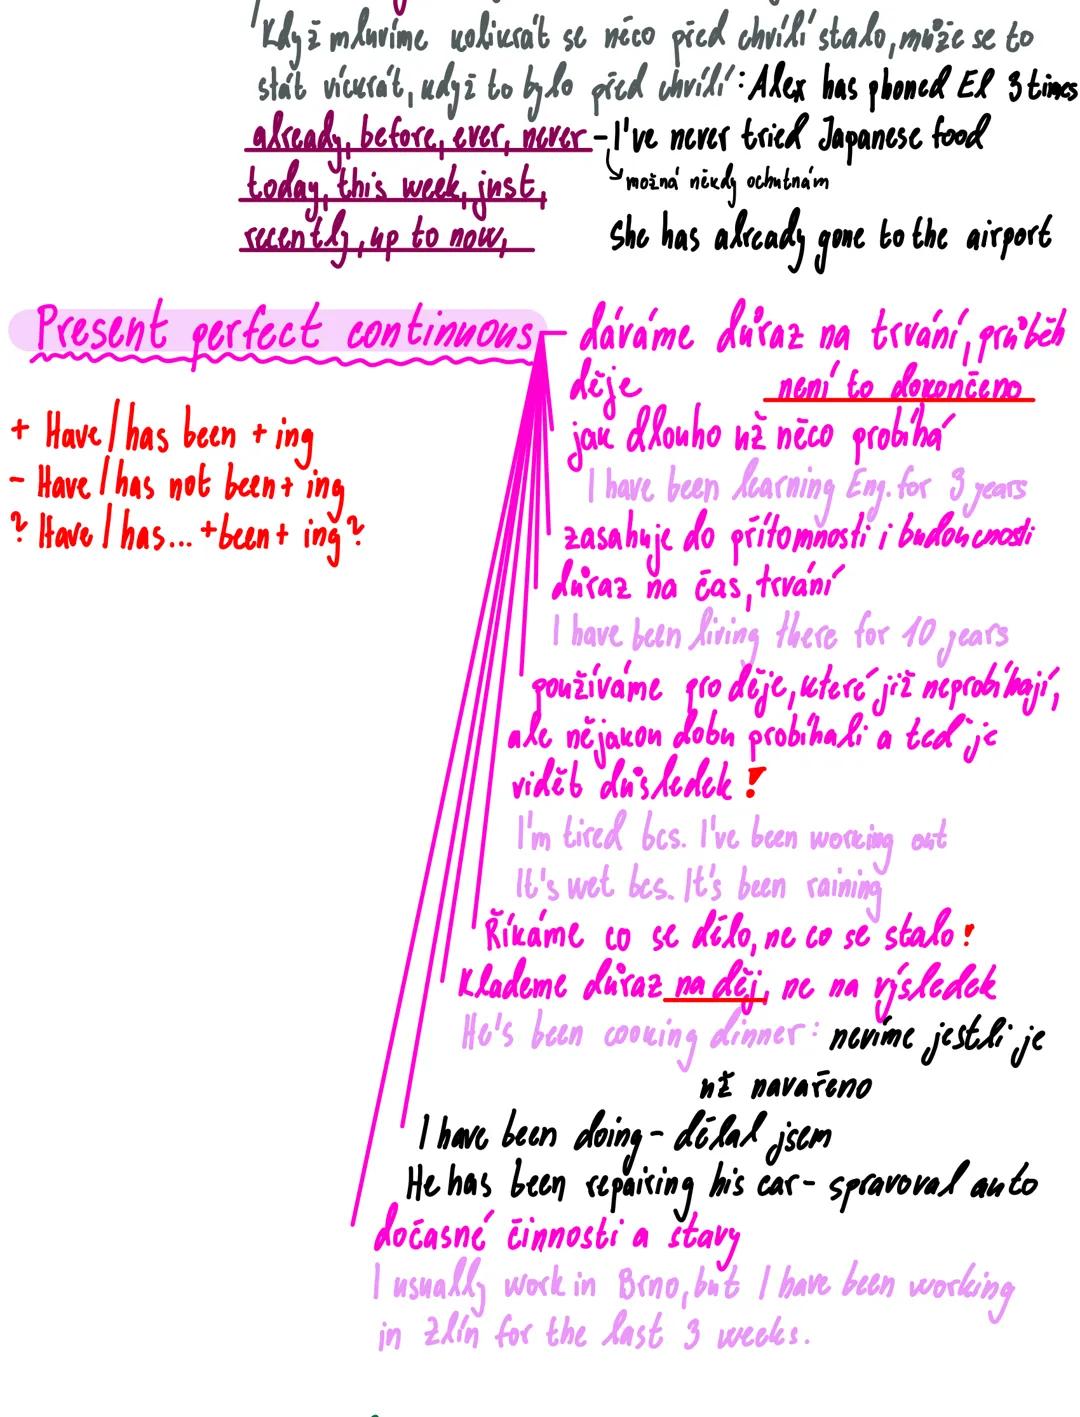 Když mluvíme kolikrát se něco před chvílí stalo, může se to
stát víckrát, když to bylo před chvílí: Alex has phoned El 3 times
already, before, ever, never - I've never tried Japanese food
možná někdy ochutnám
today, this week, just,
recently, up to now, She has already gone to the airport
Present perfect continuous - dáváme důraz na trvání, průběh
děje není to dokončeno
+ Have / has been + ing
jak dlouho už něco probíhá
- Have / has not been + ing
I have been learning Eng. for 3 years
? Have / has... + been + ing?
zasahuje do přítomnosti i budoucnosti
důraz na čas, trvání
I have been living there for 10 years
používáme pro děje, které již neprobíhají,
ale nějakou dobu probíhali a teď je
vidět důsledek!
I'm tired bcs. I've been working out
It's wet bcs. It's been raining
Říkáme co se dělo, ne co se stalo!
Klademe důraz na děj, ne na výsledek
He's been cooking dinner: nevíme jestli je
už navařeno
I have been doing - dělal jsem
He has been repairing his car - spravoval auto
dočasné činnosti a stavy
I usually work in Brno, but I have been working
in Zlín for the last 3 weeks.